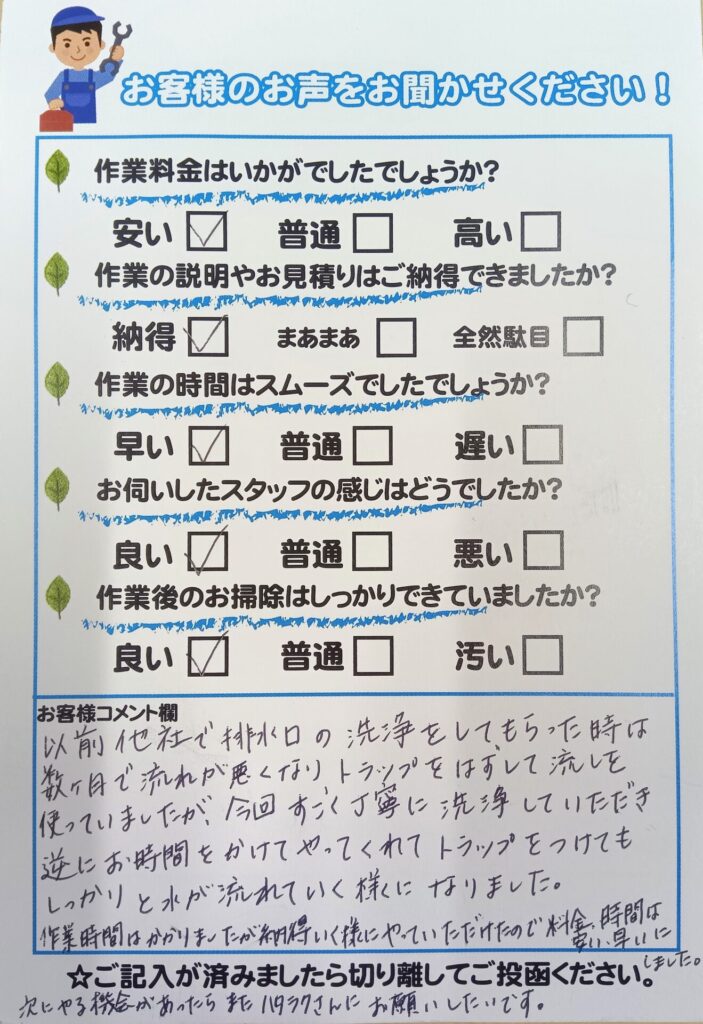 お客様のお声をお聞かせください!
作業料金はいかがでしたでしょうか?
安い 普通 高い
作業の説明やお見積りはご納得できましたか?
納得 まあまあ 全然駄目
作業の時間はスムーズでしたでしょうか?
早い 普通 遅い
お伺いしたスタッフの感じはどうでしたか?
良い 普通 悪い
作業後のお掃除はしっかりできていましたか?
良い 普通 汚い
お客様コメント欄
以前他社で排水口の洗浄をしてもらった時は
数ヶ月で流れが悪くなりトラップをはずして流しを
使っていましたが、今回すごく丁寧に洗浄していただき
逆にお時間をかけてやってくれてトラップをつけても
しっかりと水が流れていく様になりました。
作業時間はかかりましたが納得いく様にやっていただけたので料金、時間は
安い、早いに
しました。
☆ご記入が済みましたら切り離してご投函ください。
次にやる機会があったらまたハタラクさんにお願いしたいです。